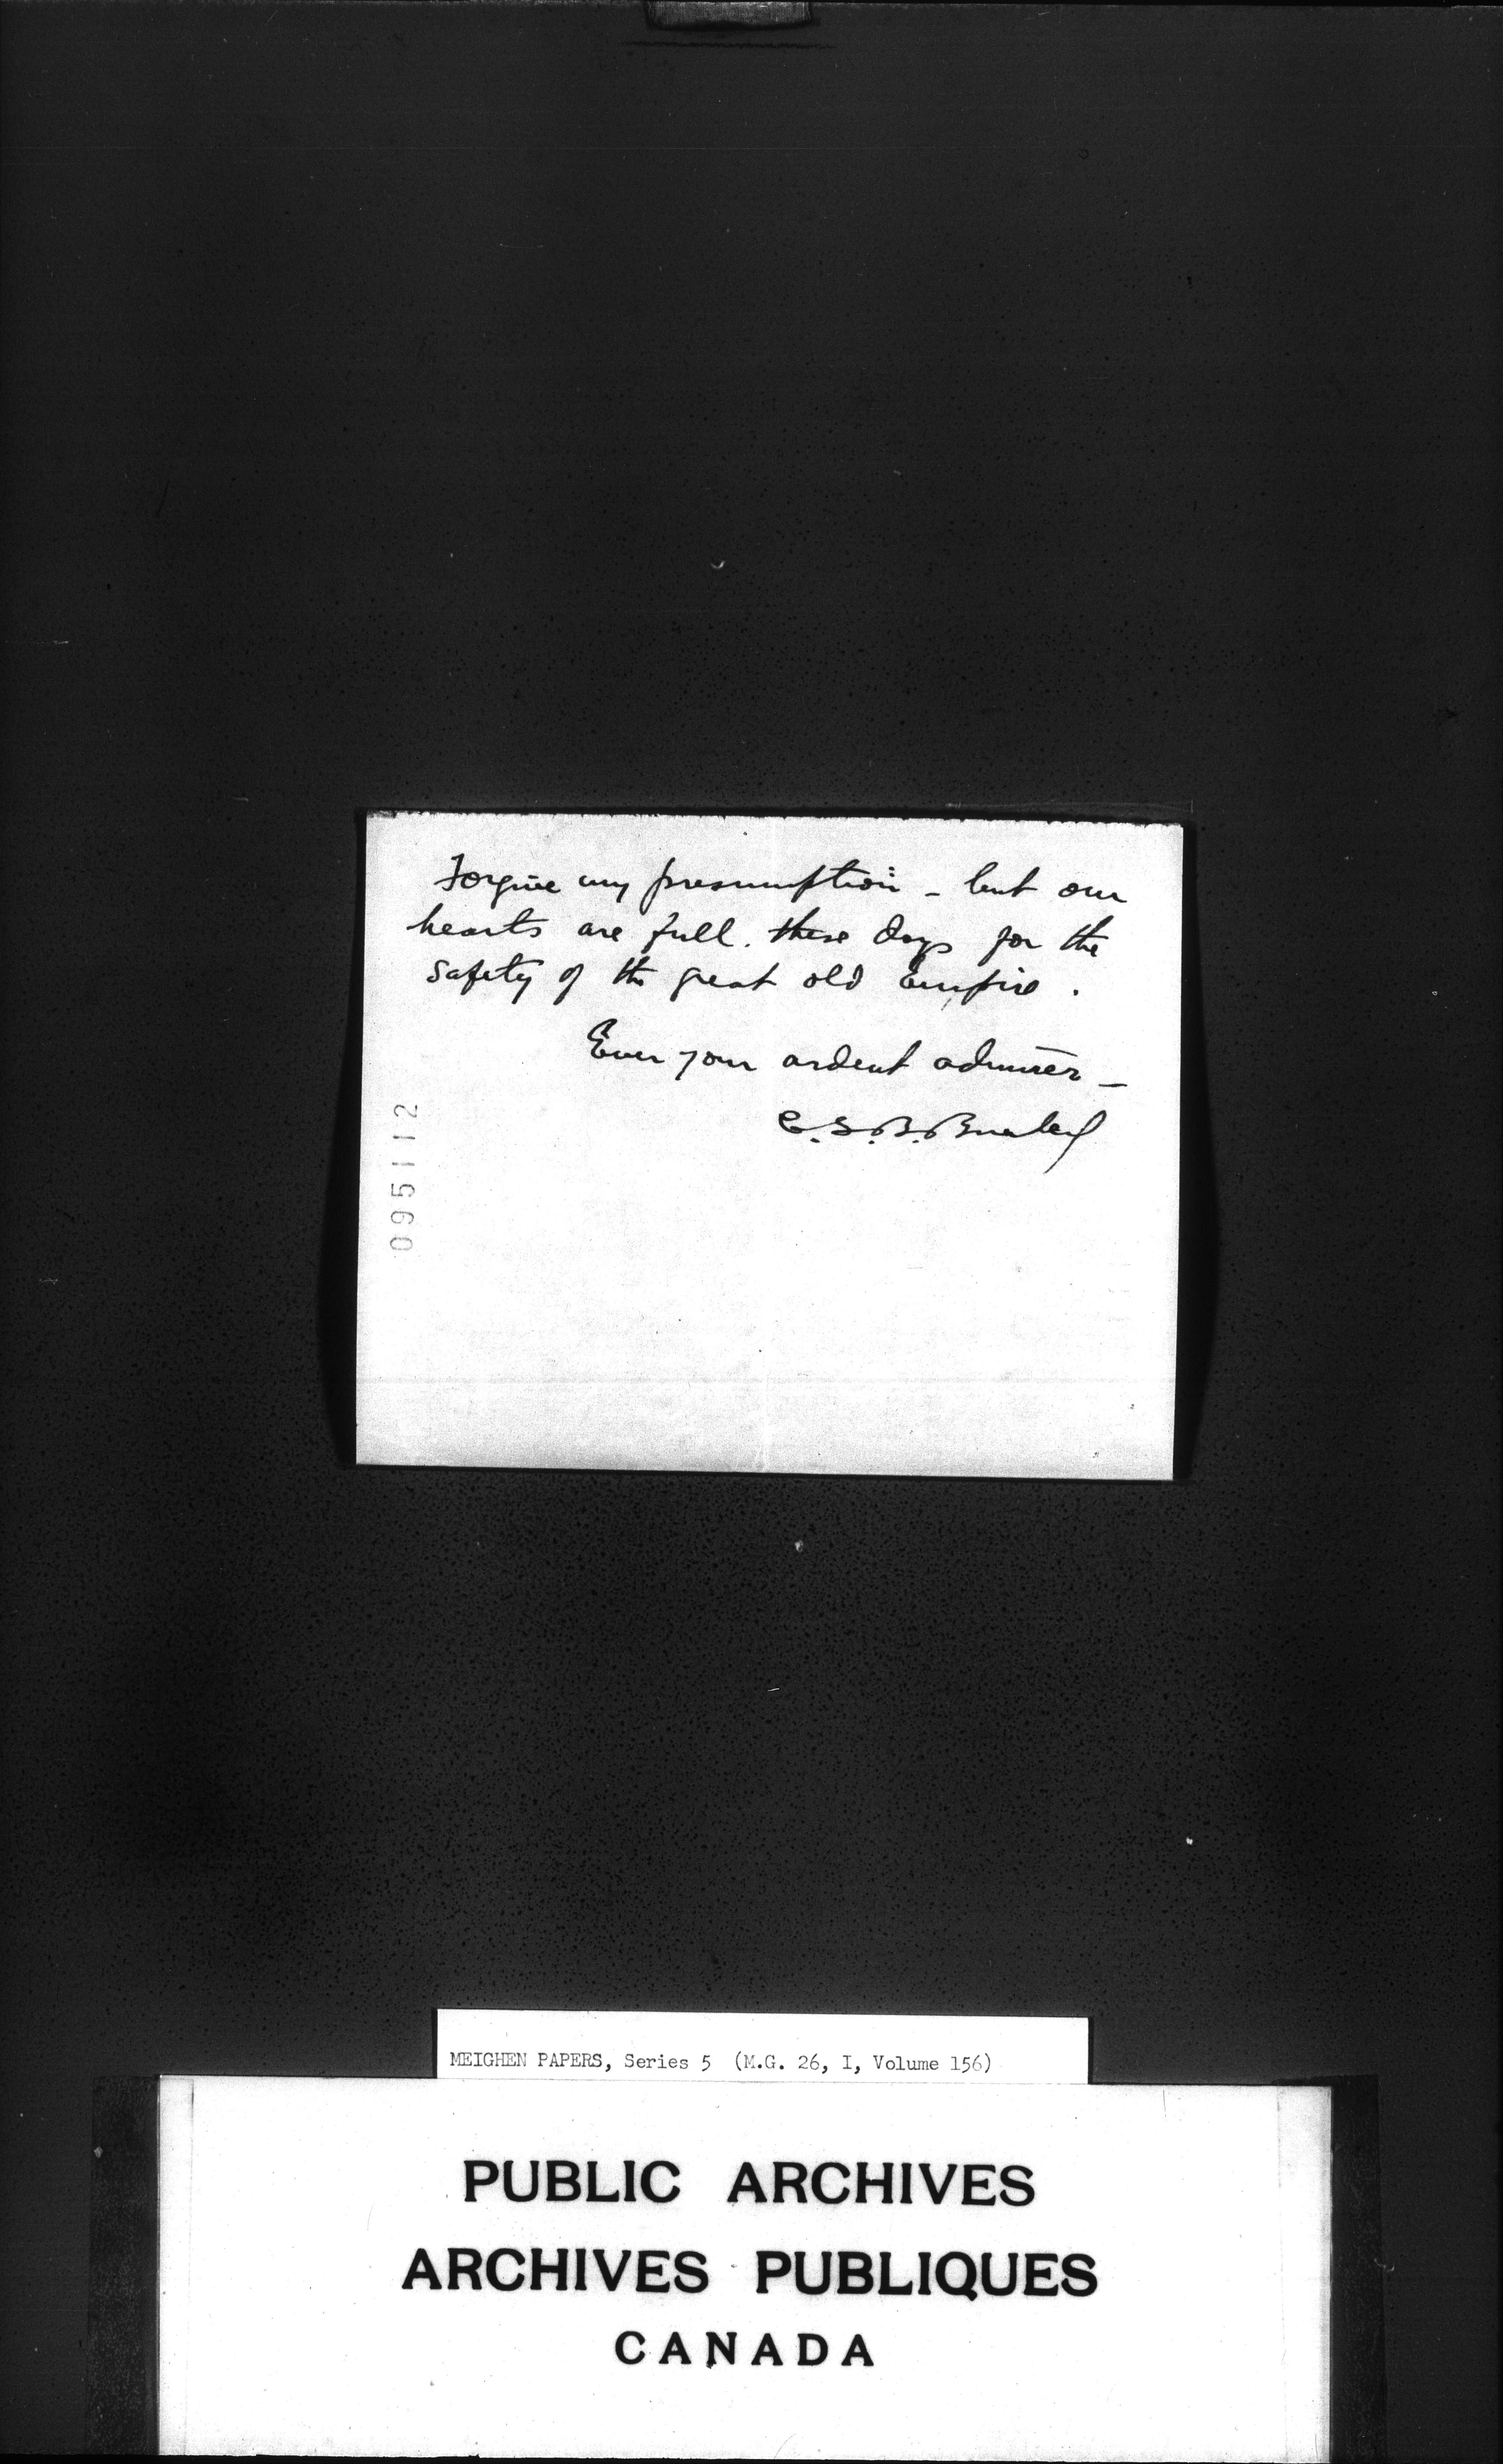 Forgive my presumption - but our
hearts are full. these days for the
safety of the great old Empire.
Ever your ardent admirer -
E.S.B.
095112
MEIGHEN PAPERS, Series 5 (M.G. 26, I, Volume 156)
PUBLIC ARCHIVES
ARCHIVES PUBLIQUES
CANADA